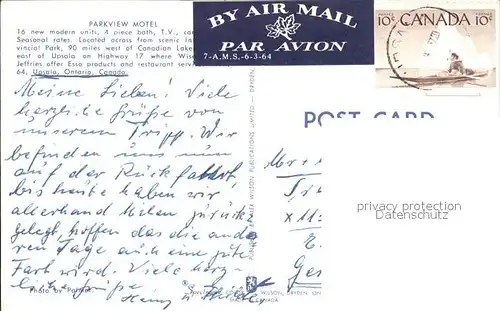 PARKVIEW MOTEL
16 new modern units, 4 piece bath, T.V., con
Seasonal rates. Located across from scenic In
vincial Park, 90 miles west of Canadian Lake
east of Upsala on Highway 17 where Wise
Jeffries offer Esso products and restaurant serv
64, Upsala, Ontario, Canada.
BY AIR MAIL
PAR AVION
7-A.M.S.-6-3-64
10¢ CANADA 10¢
POST CARD
Meine Lieben! Viele
herzliche Grüße von
unserem Tripp. Wir
befinden uns nun
auf der Rückfahrt,
bis heute haben wir
allerhand Milen zurück
gelegt, hoffen das die ande
ren Tage auch eine gute
Fart wird. Viele herz-
liche Grüße
Heinz Hilde
Photo by
WILSON, DRYDEN, ON
WILSON PUBLICATIONS LIMITED - DRYDEN
Mr +
privacy protection
Datenschutz